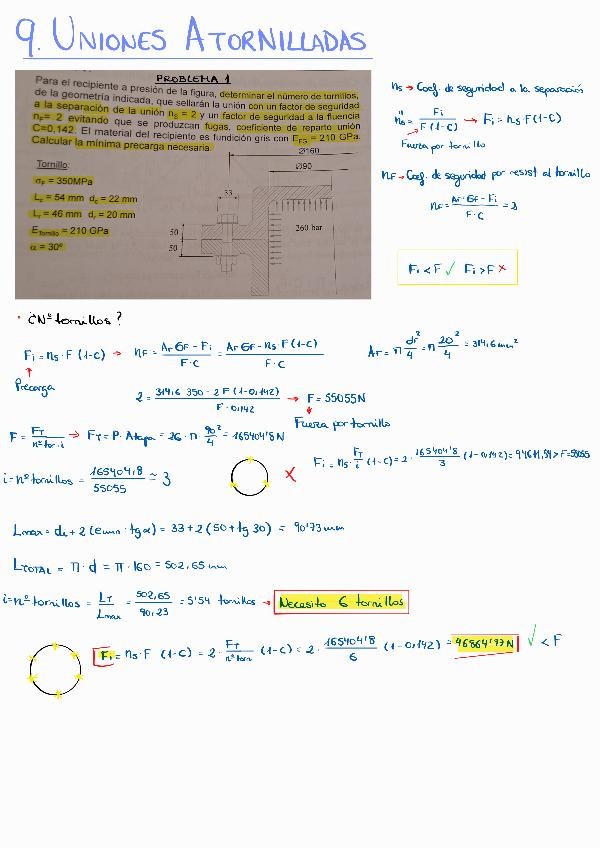 9. UNIONES ATORNILLADAS
PROBLEMA 1
Para el recipiente a presión de la figura, determinar el número de tornillos,
de la geometría indicada, que sellarán la unión con un factor de seguridad
a la separación de la unión nS = 2 y un factor de seguridad a la fluencia
nF= 2 evitando que se produzcan fugas, coeficiente de reparto unión
C=0,142. El material del recipiente es fundición gris con EFG = 210 GPa.
Calcular la mínima precarga necesaria.
Tornillo:
σF = 350MPa
Ls = 54 mm ds = 22 mm
Lr = 46 mm dr = 20 mm
ETornillo = 210 GPa
α = 30º
Ø160
Ø90
33
50
50
260 bar
ns → Coef. de seguridad a la separación
ns = Fi / F(1-C) → Fi = ns·F(1-C)
Fuerza por tornillo
nF → Coef. de seguridad por resist al tornillo
nF = Ar·σF - Fi / F·C = 2
Fi < F ✓ Fi > F ✗
· ¿Nº tornillos?
Fi = ns·F (1-C) → nF = Ar σF - Fi / F·C = Ar σF - ns·F (1-C) / F·C
Ar = π dr² / 4 = π 20² / 4 = 314,6 mm²
Precarga
2 = 314,6 · 350 - 2 F (1-0,142) / F · 0,142 → F = 55055 N
Fuerza por tornillo
F = FT / nº tor · i → FT = P · Atapa = 26 · π · 90² / 4 = 165404'8 N
i = nº tornillos = 165404,8 / 55055 ≃ 3
✗
Fi = ns · FT / i (1-C) = 2 · 165404'8 / 3 (1-0,142) = 94611,54 > F = 55055
Lmax = ds + 2 (emin · tg α) = 33 + 2 (50 + tg 30) = 90'73 mm
LTOTAL = π · d = π · 160 = 502,65 mm
i = nº tornillos = LT / Lmax = 502,65 / 90,23 = 5'54 tornillos → Necesito 6 tornillos
Fi = ns · F (1-C) = 2 · FT / nº torn (1-C) = 2 · 165404'8 / 6 (1-0,142) = 46864'77 N ✓ < F